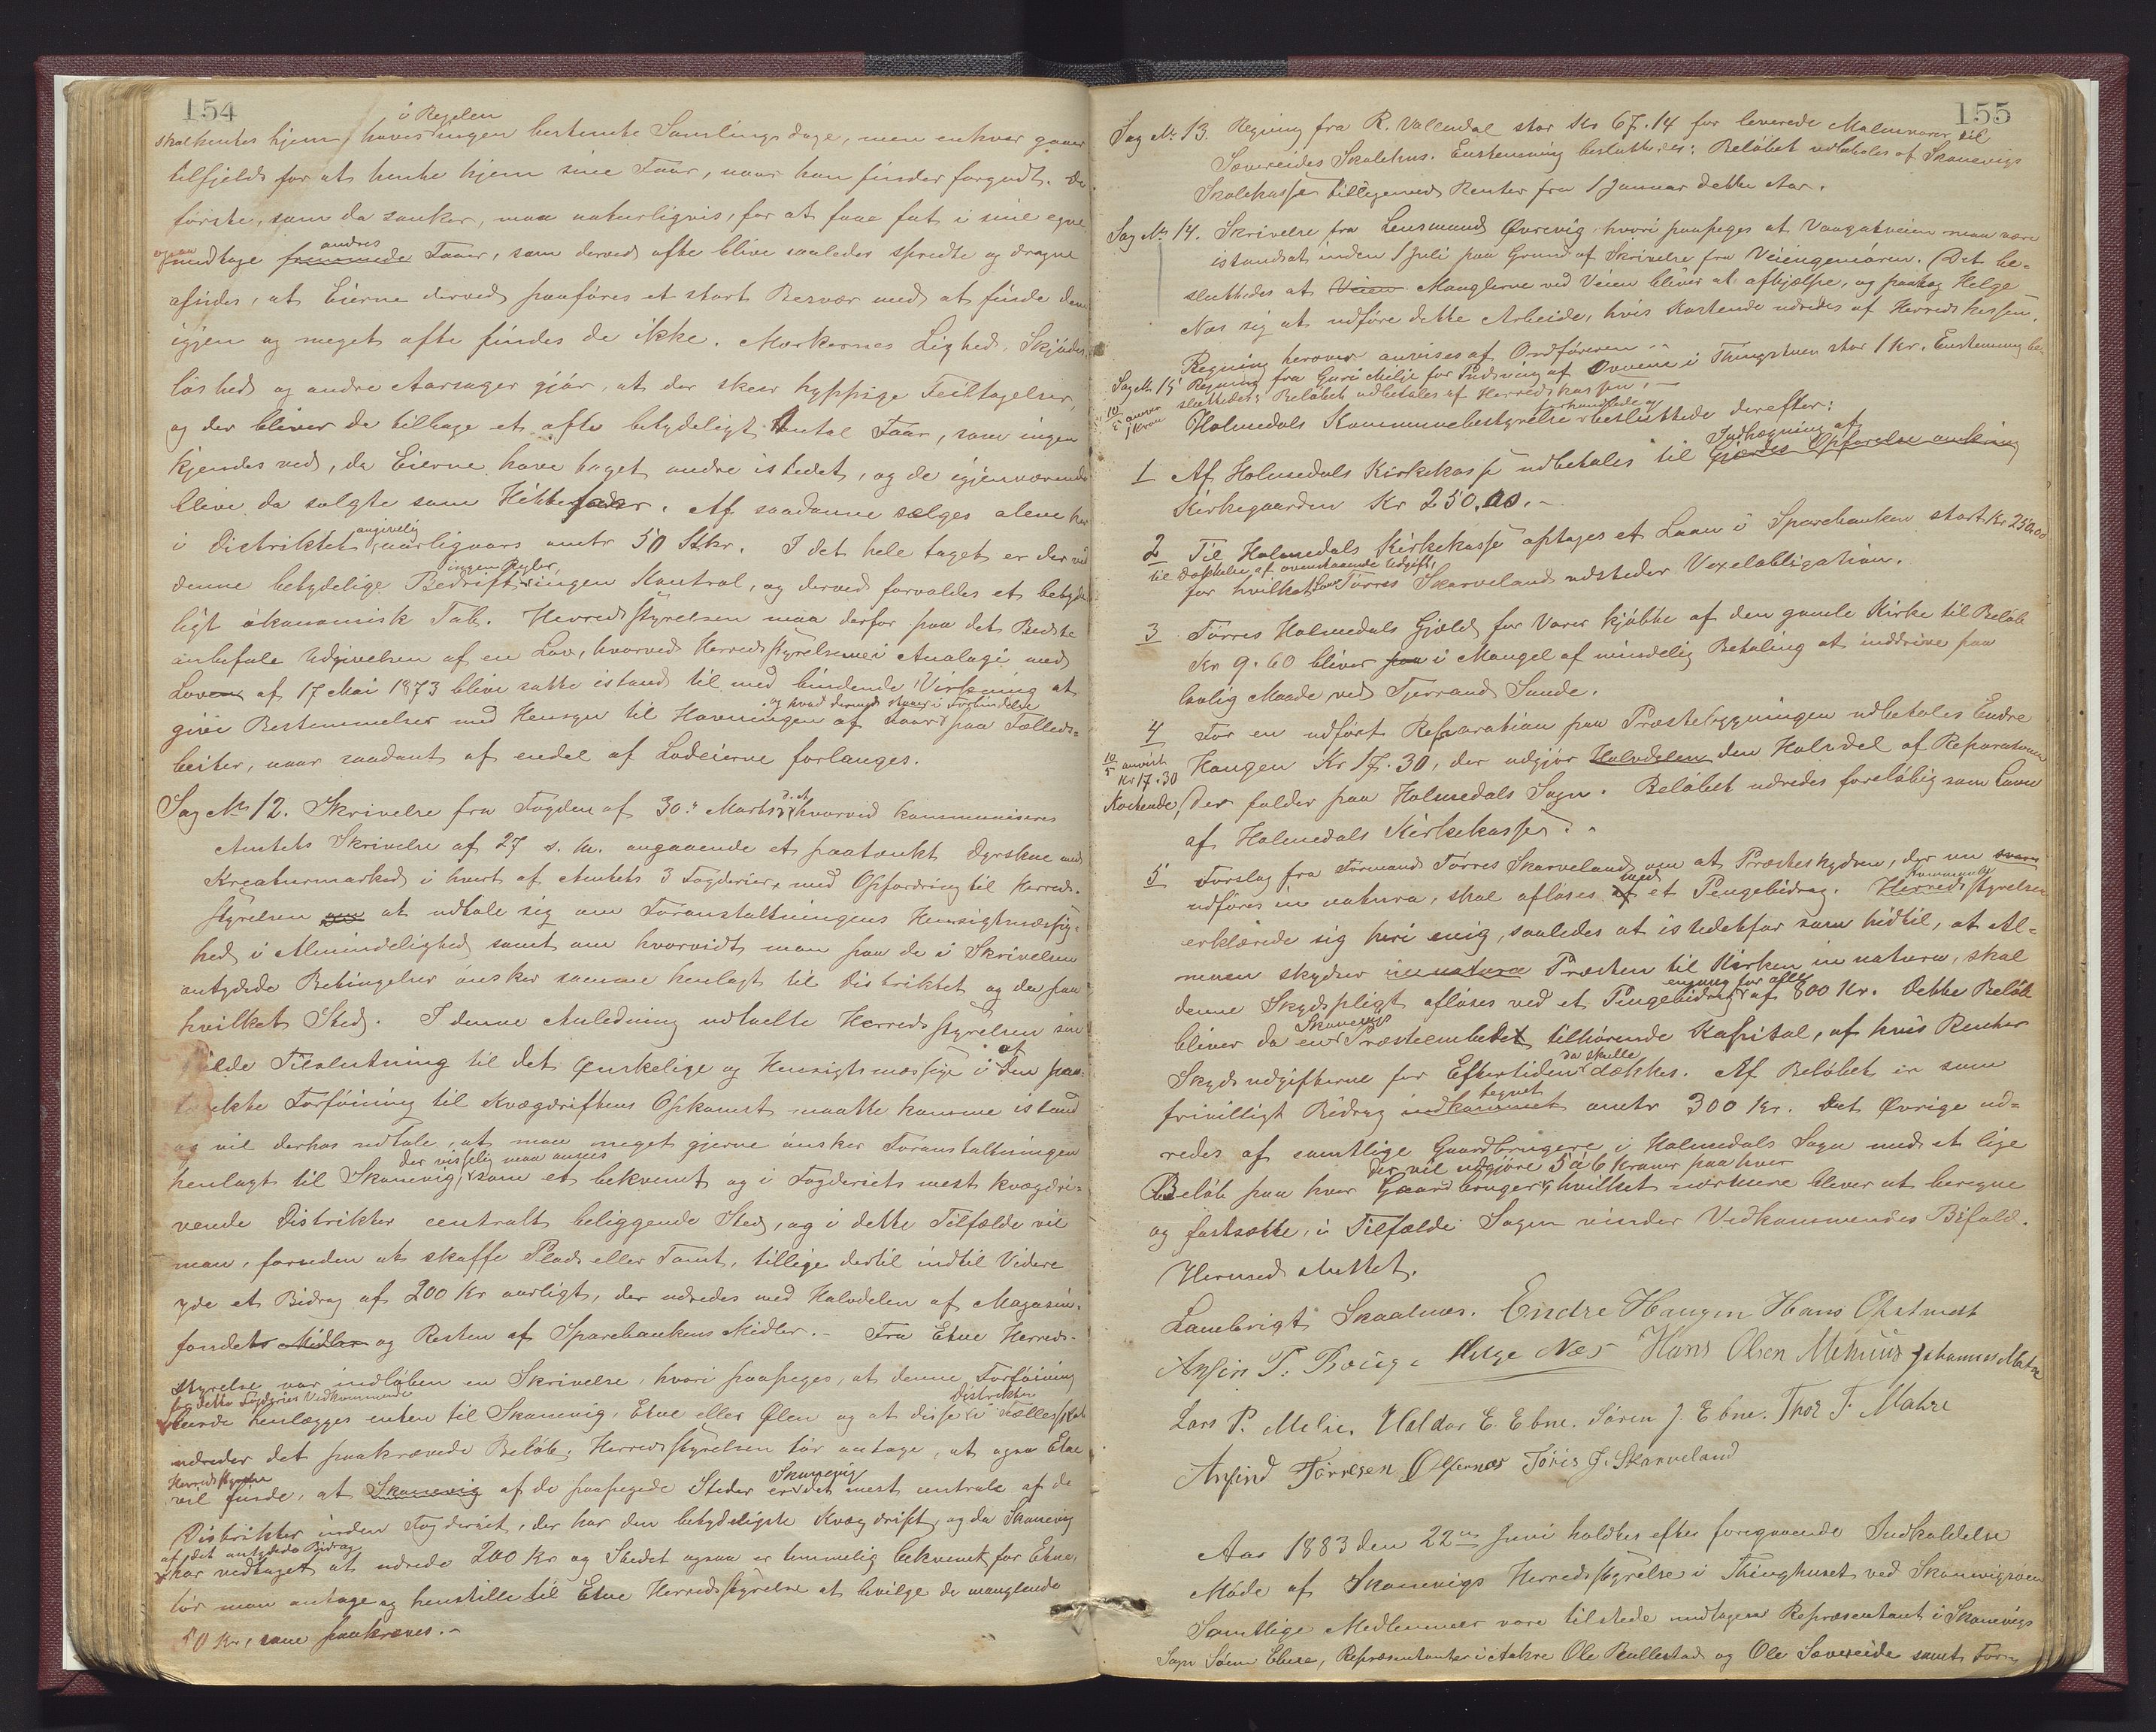 154
i Regelen
skal hentes hjem, haves ingen bestemte Samlingsdage, men enhver gaaer
tilfjelds for at hente hjem sine Faar, naar han finder forgodt. De
første, som da sanker, maa naturligvis, for at faae fat i sine egne
ogsaa andres
medtage fremmede Faar, som derved ofte blive saaledes spredte og dragne
afsides, at Eierne derved paaføres et stort Besvær med at finde dem
igjen og meget ofte findes de ikke. Mærkernes Lighed, Skjødes
løshed og andre Aarsager gjør, at der skeer hyppige Feiltagelser,
og der bliver da tilbage et ofte betydeligt Antal Faar, som ingen
kjendes ved, da Eierne have taget andre istedet, og de igjenværende
blive da solgte som Hittefaar. Af saadanne sælges alene her
angivelig
i Distriktet aarligaars omtr 50 Stkr. I det hele taget er der ved
ingen Regler,
denne betydelige Bedrift ingen Kontrol, og derved forvoldes et betyde
ligt økonomisk Tab. Herredsstyrelsen maa derfor paa det Bedste
anbefale Udgivelsen af en Lov, hvorved Herredsstyrelserne i Analogi med
Loven af 17 Mai 1873 blive satte istand til med bindende Virkning at
og hvad dermed staaer i Forbindelse
give Bestemmelser med Hensyn til Havningen af Faar paa Fælleds-
beiter, naar saadant af endel af Lodeierne forlanges.
Sag No 12. Skrivelse fra Fogden af 30te Marts d. A. hvorved kommuniseres
Amtets Skrivelse af 27 s. M. angaaende et paatænkt Dyrskue med
Kreaturmarked i hvert af Amtets 3 Fogderier, med Opfordring til Herreds-
styrelsen om at udtale sig om Foranstaltningens Hensigtsmæssig-
hed i Almindelighed samt om hvorvidt man paa de i Skrivelsen
antydede Betingelser ønsker samme henlagt til Distriktet og da paa
hvilket Sted. I denne Anledning udtalte Herredsstyrelsen sin
fulde Tilslutning til det Ønskelige og Hensigtsmæssige i at den paa-
tænkte Forføining til Kvægdriftens Opkomst maatte komme istand
og vil derhos udtale, at man meget gjerne ønsker Foranstaltningen
der visselig maa ansees
henlagt til Skonevig, som et bekvemt og i Fogderiets mest kvægdri-
vende Distrikter centralt beliggende Sted, og i dette Tilfælde vil
man, foruden at skaffe Plads eller Tomt, tillige dertil indtil Videre
yde et Bidrag af 200 Kr aarligt, der udredes med Halvdelen af Magasin-
fondets Midler og Resten af Sparebankens Midler. – Fra Etne Herreds-
styrelse var indløben en Skrivelse, hvori paapeges, at denne Forføining
for dette Fogderies Vedkommende Distrikter
burde henlægges enten til Skonevig, Etne eller Ølen og at disse i Fællesskab
udreder det paakrævede Beløb. Herredsstyrelsen tør antage, at ogsaa Etne
Herredsstyrelse Skonevig
vil finde, at Skonevig af de paapegede Steder er det mest centrale af de
Distrikter inden Fogderiet, der har den betydeligste Kvægdrift, og da Skonevig
af det antydede Bidrag
har vedtaget at udrede 200 Kr og Stedet ogsaa er temmelig bekvemt for Etne,
tør man antage og henstille til Etne Herredsstyrelse at bevilge de manglende
50 Kr, som paakræves. –
155
Sag No 13. Regning fra R. Vallendal stor Kr 67.14 for leverede Malervarer til
Sævereides Skolehus. Enstemmig besluttedes: Beløbet udbetales af Skonevigs
Skolekasse tilligemed Renter fra 1 Januar dette Aar.
Sag No 14. Skrivelse fra Lensmand Øvrevig hvori paapeges at Vaagatveien maa være
istandsat inden 1 Juli paa Grund af Skrivelse fra Veiingeniøren. Det be-
sluttedes at Veien Manglerne ved Veien bliver at afhjælpe, og paatog Helge
Næs sig at udføre dette Arbeide, hvis Kostende udredes af Herredskassen.
Regning herover anvises af Ordføreren. –
Sag No 15 Regning fra Guri Milje for Pudsning af Ovnene i Thingstuen stor 1 Kr. Enstemmig be-
sluttedes: Beløbet udbetales af Herredskassen. –
10/5 anvist 1 Krone
forhandlede og
Holmedals Kommunebestyrelse besluttede derefter:
Indhegning af
1 Af Holmedals Kirkekasse udbetales til Gjerdes Opførelse omkring
Kirkegaarden Kr 250.00. –
2 Til Holmedals Kirkekasse optages et Laan i Sparebanken stort Kr 250.00
til Dækkelse af ovenstaaende Udgift,
for hvilket Laan Tørres Skarveland udsteder Vexelobligation.
3 Tørres Holmedals Gjæld for Varer kjøbte af den gamle Kirke til Beløb
Kr 9.60 bliver paa i Mangel af mindelig Betaling at inddrive paa
lovlig Maade ved Tjerrand Sunde.
4 For en udført Reparation paa Præstebygningen udbetales Endre
10/5 anvist Kr 17.30
Haugen Kr 17.30, der udgjør Halvdelen den Halvdel af Reparationens
Kostende, der falder paa Holmedals Sogn. Beløbet udredes foreløbig som Laan
af Holmedals Kirkekasse. –
5 Forslag fra Formand Tørres Skarveland om at Præsteskydsen, der nu svares
med Kommunebe-
udføres in natura, skal afløses af et Pengebidrag. Herredsstyrelsen
erklærede sig heri enig, saaledes at istedetfor som hidtil, at Al-
muen skydser in natura Præsten til Kirken in natura, skal
engang for alle
denne Skydspligt afløses ved et Pengebidrag af 800 Kr. Dette Beløb
Skonevigs
bliver da en Præsteembedet tilhørende Kapital, af hvis Renter
da skulle
Skydsudgifterne for Eftertiden dækkes. Af Beløbet er som
tegnet
frivilligt Bidrag indkommet omtr 300 Kr. Det Øvrige ud-
redes af samtlige Gaardbrugere i Holmedals Sogn med et lige
der vil udgjøre 5 à 6 Kroner paa hver
Beløb paa hver Gaardbruger, hvilket nærmere bliver at beregne
og fastsætte, i Tilfælde Sagen vinder Vedkommendes Bifald.
Hermed sluttet.
Lambrigt Skaalnes. Endre Haugen Hans Økstvedt
Anfin T. Børge Helge Næs Hans Olsen Mehuus Johannes Matre
Lars P. Melie. Haldor E. Ebne. Søren J. Ebne. Thor T. Matre
Anfind Tørresen Ølfernæs Tøris J. Skarveland
Aar 1883 den 22de Juni holdtes efter foregaaende Indkaldelse
Møde af Skonevigs Herredsstyrelse i Thinghuset ved Skonevigsøen
Samtlige Medlemmer vare tilstede undtagen Repræsentant i Skonevigs
Sogn Søren Ebne, Repræsentanter i Aakre Ole Rullestad og Ole Sævereide samt For-